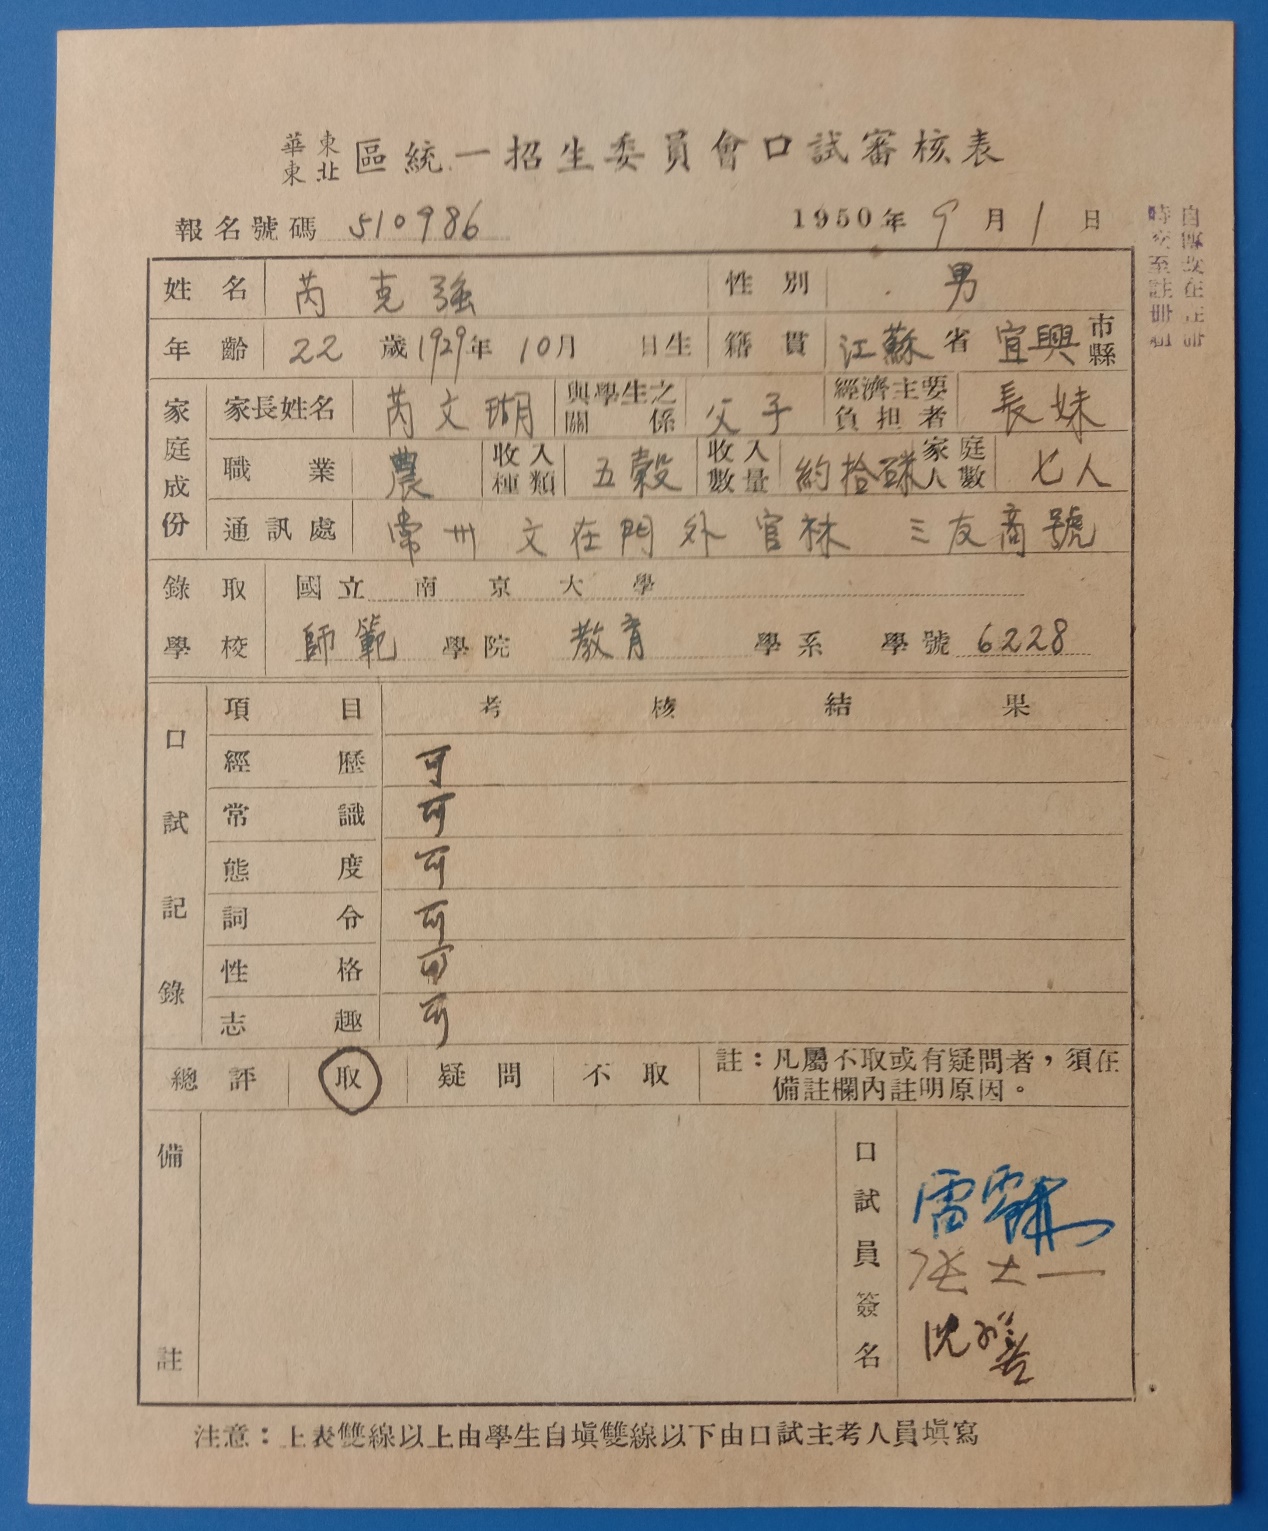 華東 東北 區統一招生委員會口試審核表
報名號碼 510986 1950年 9月 1日
姓名 芮克強 性別 男
年齡 22歲 1929年 10月 日生 籍貫 江蘇省 宜興 市縣
家庭成份
家長姓名 芮文瑚 與學生之關係 父子 經濟主要負担者 長妹
職業 農 收入種類 五穀 收入數量 約拾 家庭人數 七人
通訊處 常州 文在門外 官林 三友商號
錄取學校 國立 南京大學
師範 學院 教育 學系 學號 6228
口試記錄
項目 考核結果
經歷 可
常識 可
態度 可
詞令 可
性格 可
志趣 可
總評 取 疑問 不取 註：凡屬不取或有疑問者，須在
備註欄內註明原因。
備註
口試員簽名
注意：上表雙線以上由學生自塡雙線以下由口試主考人員塡寫